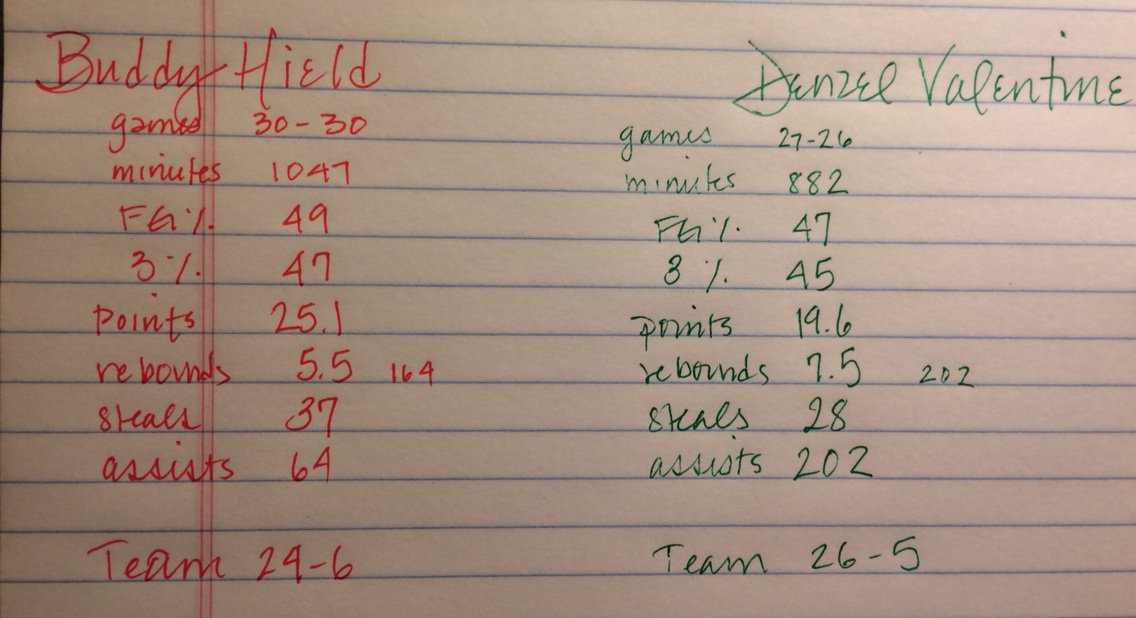 Buddy Hield
games 30-30
minutes 1047
FG% 49
3% 47
Points 25.1
rebounds 5.5 164
steals 37
assists 64
Team 24-6
Denzel Valentine
games 27-26
minutes 882
FG% 47
3% 45
points 19.6
rebounds 7.5 202
steals 28
assists 202
Team 26-5